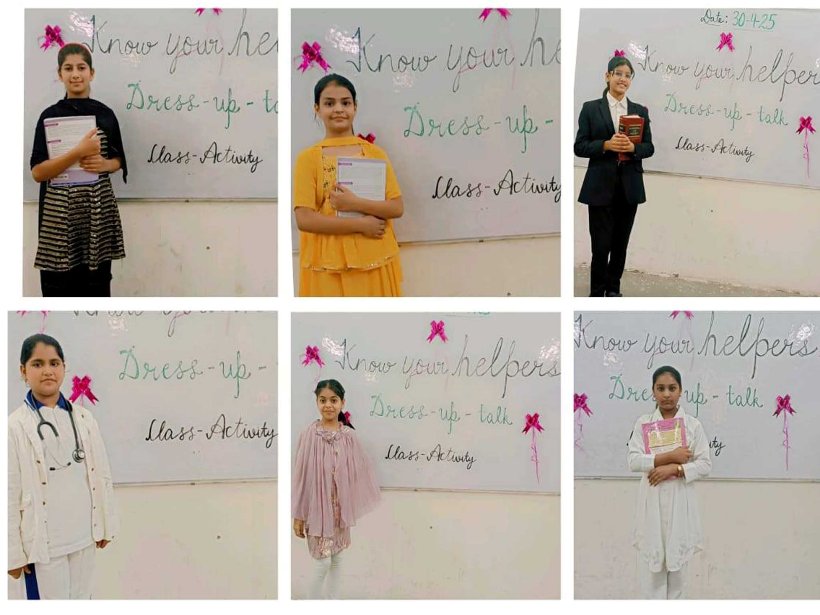 Know your hel
Dress-up-ta
Class-Activity
Know your he
Dress-up-
Class-Activity
Date: 30-4-25
Know your helper
Dress-up-talk
Class-Activity
Dress-up-
Class-Activity
Know your helpers
Dress-up-talk
Class-Activity
Know your helpers
Dre up-talk